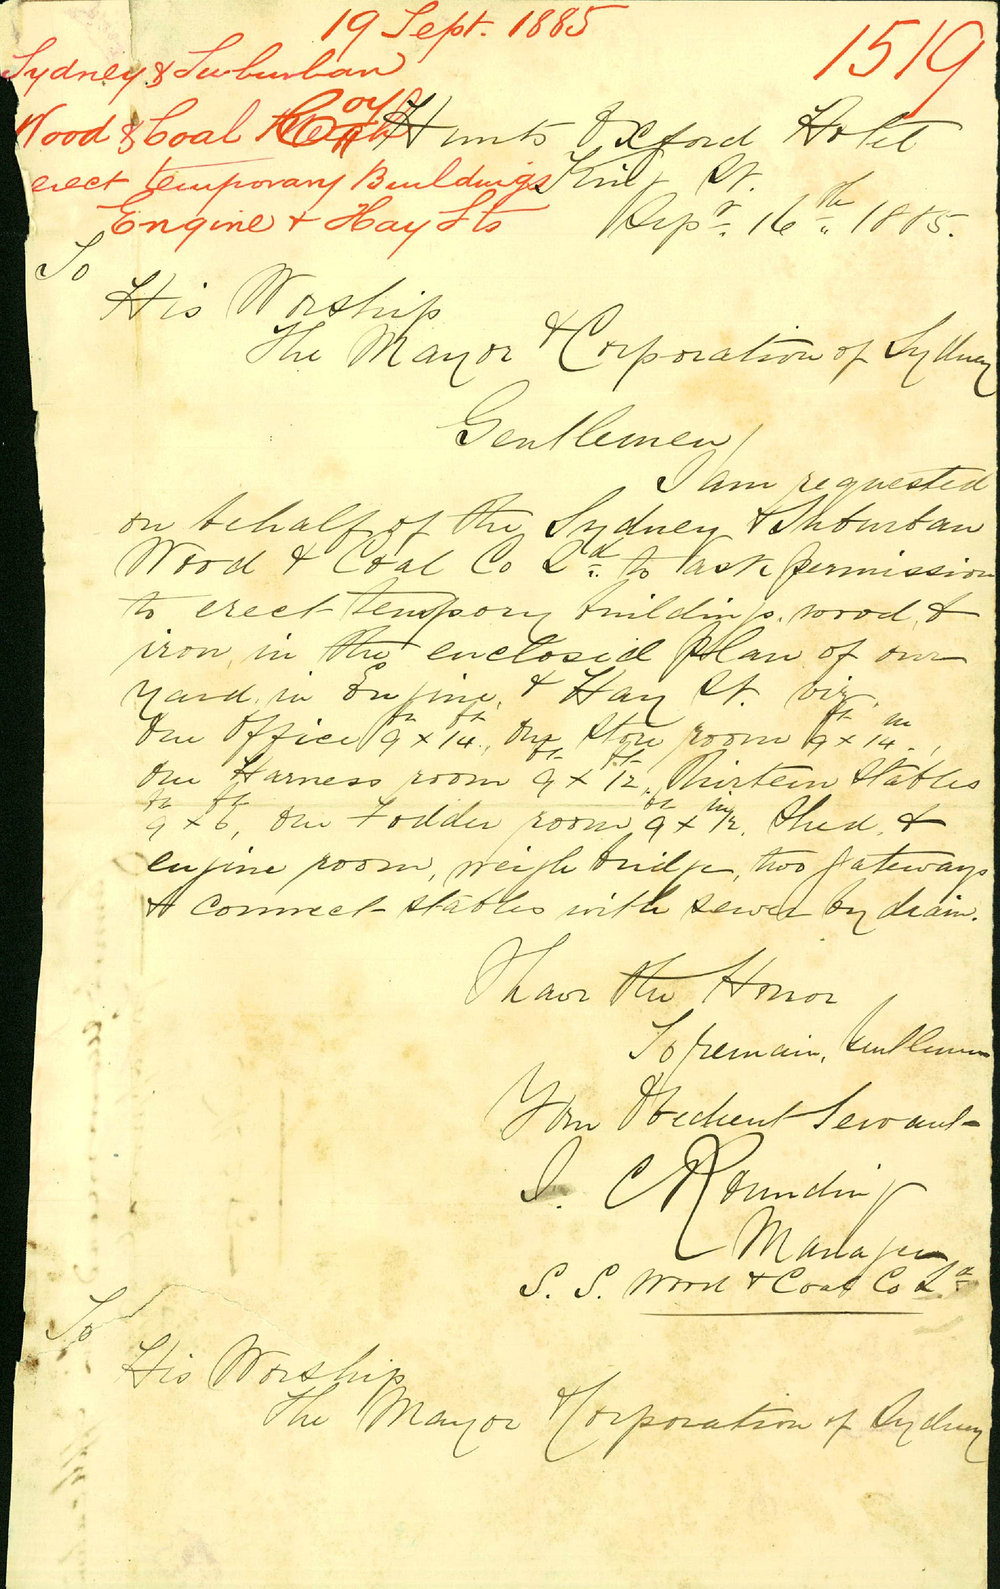 19 Sept. 1885
1519
Sydney & Suburban
Wood & Coal Coy
erect temporary Buildings
Engine & Hay Sts
Hunts Oxford Hotel
King St.
Sepr. 16th 1885.
To
His Worship
The Mayor & Corporation of Sydney
Gentlemen/
I am requested
on behalf of the Sydney & Suburban
Wood & Coal Co Ld. to ask permission
to erect tempory buildings, wood &
iron, in the enclosed plan of our
Yard, in Engine, & Hay St. viz.
One Office 9ft x 14ft, One Store room 9ft x 14
One Harness room 9ft x 12ft, Thirteen Stables
9ft x 6ft, One Fodder room 9ft x 12, Shed, &
engine room, weigh bridge, two gateways
& connect stables with sewer by drain.
I have the Honor
To remain, Gentlemen
Your Obedient Servant
J. C. Rounding
Manager
S. S. Wood & Coal Co Ld
To
His Worship
The Mayor & Corporation of Sydney